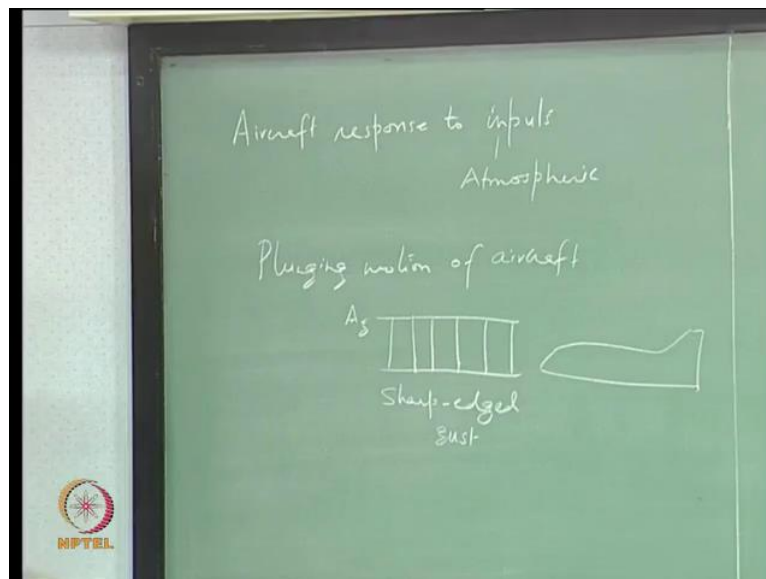 Aircraft response to inputs
Atmospheric
Plunging motion of aircraft
Ag
Sharp-edged
gust
NPTEL